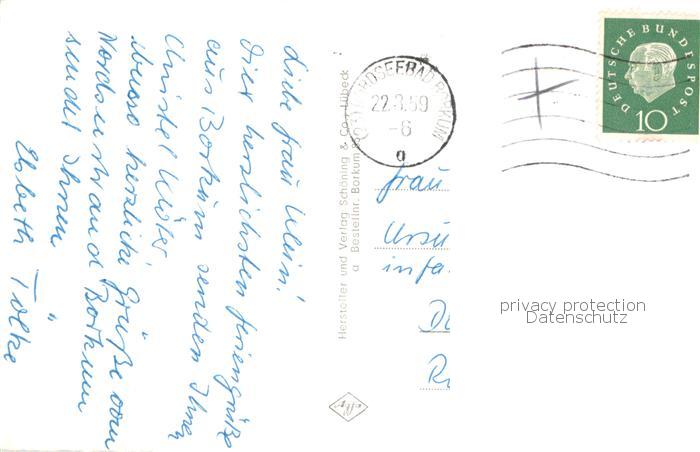 Liebe Frau Klein!
Die herzlichsten Feriengrüße
aus Borkum senden Ihnen
Christel
ebenso herzliche Grüße vom
Nordseestrand Borkum
sendet Ihnen
Elsbeth Tölke
Hersteller und Verlag Schöning & Co., Lübeck
a Bestellnr. Borkum
NORDSEEBAD BORKUM
22.3.59
-6
a
DEUTSCHE BUNDESPOST
10
Frau
Ursu
infa.
privacy protection
Datenschutz